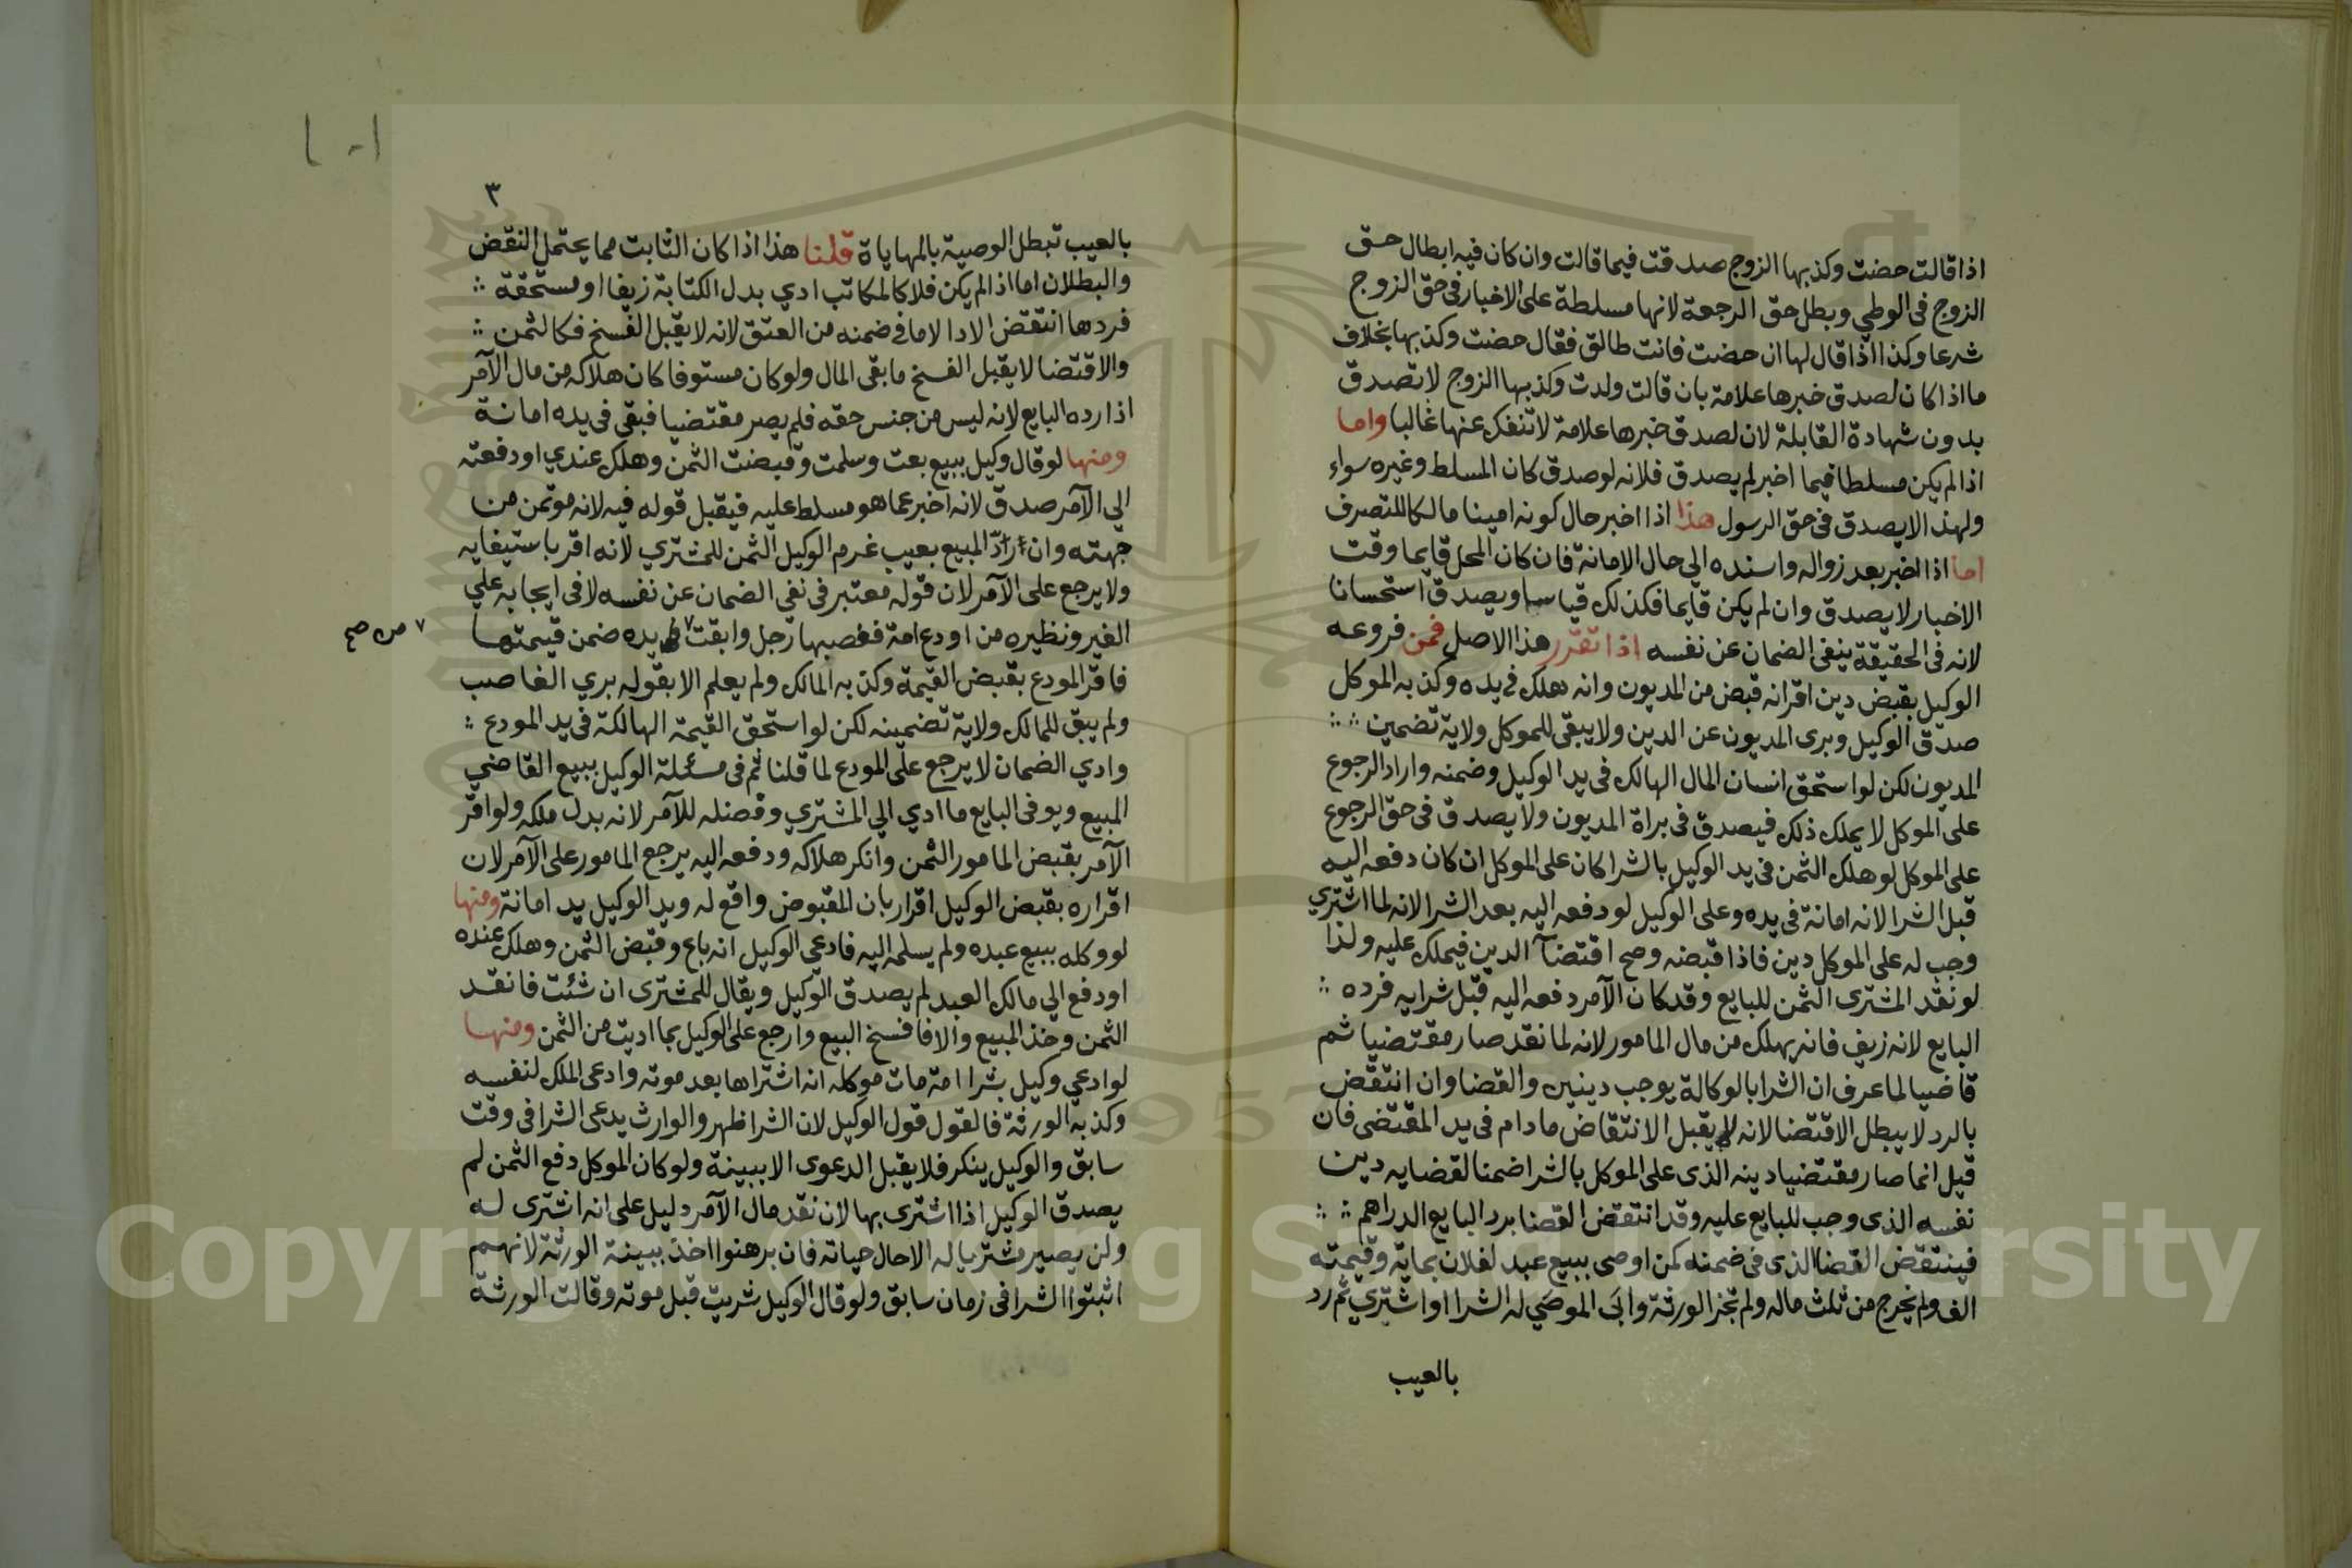 اذا قالت حضت وكذبها الزوج صدقت فيما قالت وان كان فيه ابطال حق
الزوج فى الوطي وبطل حق الرجعة لانها مسلطة على الاخبار فى حق الزوج
شرعا وكذا اذا قال لها ان حضت فانت طالق فقال حضت وكذبها بخلاف
ما اذا كان لصدق خبرها علامة بان قالت ولدت وكذبها الزوج لا تصدق
بدون شهادة القابلة لان لصدق خبرها علامة لا تنفك عنها غالبا واما
اذا لم يكن مسلطا فيما اخبر لم يصدق فلانه لو صدق كان المسلط وغيره سواء
ولهذا لا يصدق فى حق الرسول هذا اذا اخبر حال كونه امينا مالكا للتصرف
اما اذا اخبر بعد زواله واسنده الي حال الامانة فان كان المحل قايما وقت
الاخبار لا يصدق وان لم يكن قايما فكذلك قياسا ويصدق استحسانا
لانه فى الحقيقة ينفى الضمان عن نفسه اذا تقرر هذا الاصل فمن فروعه
الوكيل بقبض دين اقر انه قبض من المديون وانه هلك فى يده وكذبه الموكل
صدق الوكيل وبرى المديون عن الدين ولا يبقى للموكل ولاية تضمين
المديون لكن لو استحق انسان المال الهالك فى يد الوكيل وضمنه واراد الرجوع
على الموكل لا يملك ذلك فيصدق فى براة المديون ولا يصدق فى حق الرجوع
على الموكل لو هلك الثمن فى يد الوكيل بالشرا كان على الموكل ان كان دفعه اليه
قبل الشرا لانه امانة فى يده وعلى الوكيل لو دفعه اليه بعد الشرا لانه لما اشتري
وجب له على الموكل دين فاذا قبضه وصح اقتضآ الدين فيملك عليه ولذا
لو نقد المشترى الثمن للبايع وقد كان الآمر دفعه اليه قبل شرايه فرده
البايع لانه زيف فانه يهلك من مال المامور لانه لما نقد صار مقتضيا ثم
قاضيا لما عرف ان الشرا بالوكالة يوجب دينين والقضا وان انتقض
بالرد لا يبطل الاقتضا لانه لا يقبل الانتقاض ما دام فى يد المقتضى فان
قيل انما صار مقتضيا دينه الذى على الموكل بالشرا ضمنا لقضايه دين
نفسه الذى وجب للبايع عليه وقد انتقض القضا برد البايع الدراهم
فينتقض القضا الذى فى ضمنه كمن اوصى ببيع عبد لفلان بماية وقيمته
الف ولم يخرج من ثلث ماله ولم تجز الورثة وابى الموصي له الشرا او اشتري ثم رد
بالعيب
٣
بالعيب تبطل الوصية بالمهاياة قلنا هذا اذا كان الثابت مما يحتمل النقض
والبطلان اما اذا لم يكن فلا كالمكاتب ادي بدل الكتابة زيفا او مستحقة
فردها انتقض الادا لا ما فى ضمنه من العتق لانه لا يقبل الفسخ فكالثمن
والاقتضا لا يقبل الفسخ ما بقى المال ولو كان مستوفا كان هلاكه من مال الآمر
اذا رده البايع لانه ليس من جنس حقه فلم يصر مقتضيا فبقى فى يده امانة
ومنها لو قال وكيل ببيع بعت وسلمت وقبضت الثمن وهلك عندي او دفعته
الي الآمر صدق لانه اخبر عما هو مسلط عليه فيقبل قوله فيه لانه موتمن من
جهته وان اراد المبيع بعيب غرم الوكيل الثمن للمشتري لانه اقر باستيفايه
ولا يرجع على الآمر لان قوله معتبر فى نفى الضمان عن نفسه لا فى ايجابه علي
الغير ونظيره من اودع امة فغصبها رجل وابقت ٧ يده ضمن قيمتها
٧ من صح
فاقر المودع بقبض القيمة وكذبه المالك ولم يعلم الا بقوله بري الغاصب
ولم يبق للمالك ولاية تضمينه لكن لو استحق القيمة الهالكة فى يد المودع
وادي الضمان لا يرجع على المودع لما قلنا ثم فى مسئلة الوكيل يبيع القاضي
المبيع ويوفى البايع ما ادي الي المشتري وفضله للآمر لانه بدل ملكه ولو اقر
الآمر بقبض المامور الثمن وانكر هلاكه ودفعه اليه يرجع المامور على الآمر لان
اقراره بقبض الوكيل اقرار بان المقبوض واقع له ويد الوكيل يد امانة ومنها
لو وكله ببيع عبده ولم يسلمه اليه فادعى الوكيل انه باع وقبض الثمن وهلك عنده
او دفع الي مالك العبد لم يصدق الوكيل ويقال للمشترى ان شئت فانقد
الثمن وخذ المبيع والا فافسخ البيع وارجع على الوكيل بما اديت من الثمن ومنها
لو ادعي وكيل بشرا امة مات موكله انه اشتراها بعد موته وادعى الملك لنفسه
وكذبه الورثة فالقول قول الوكيل لان الشرا ظهر والوارث يدعى الشرا فى وقت
سابق والوكيل ينكر فلا يقبل الدعوى الا ببينة ولو كان الموكل دفع الثمن لم
يصدق الوكيل اذا اشترى بها لان نقد مال الآمر دليل على انه اشترى له
ولن يصير مشتريا له الا حال حياته فان برهنوا اخذ ببينة الورثة لانهم
اثبتوا الشرا فى زمان سابق ولو قال الوكيل شريت قبل موته وقالت الورثة
Copyright © King Saud University
1957